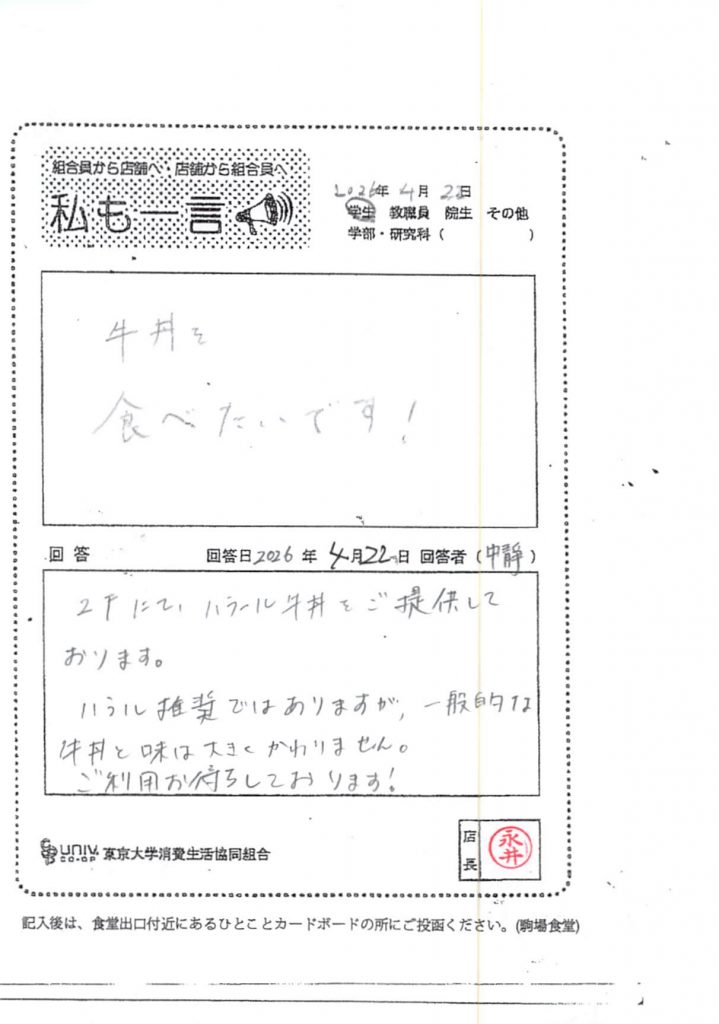 組合員から店舗へ・店舗から組合員へ
私も一言
2026年 4月 22日
学生 教職員 院生 その他
学部・研究科( )
牛丼を
食べたいです!
回答 回答日2026年 4月22日 回答者(中静)
2Fにて、ハラール牛丼をご提供して
おります。
ハラル推奨ではありますが、一般的な
牛丼と味は大きくかわりません。
ご利用お待ちしております!
UNIV. CO-OP 東京大学消費生活協同組合
店長 永井
記入後は、食堂出口付近にあるひとことカードボードの所にご投函ください。(駒場食堂)